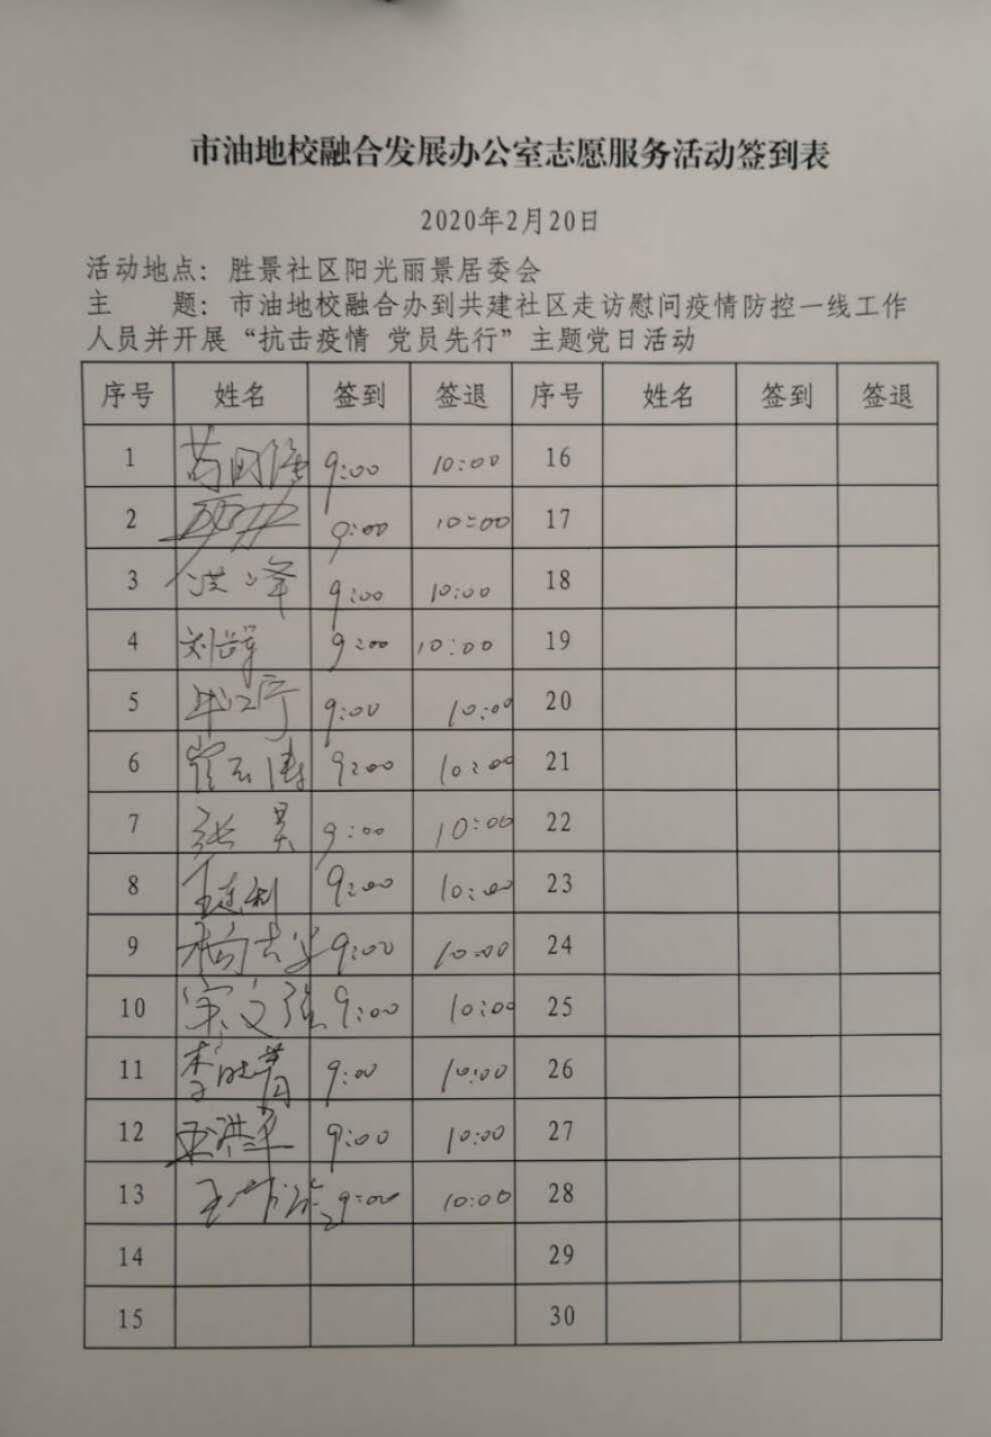 市油地校融合发展办公室志愿服务活动签到表
2020年2月20日
活动地点：胜景社区阳光丽景居委会
主 题：市油地校融合办到共建社区走访慰问疫情防控一线工作
人员并开展“抗击疫情 党员先行”主题党日活动
序号 姓名 签到 签退 序号 姓名 签到 签退
1 9:00 10:00 16
2 9:00 10:00 17
3 洪峰 9:00 10:00 18
4 9:00 10:00 19
5 9:00 10:00 20
6 9:00 10:00 21
7 张昊 9:00 10:00 22
8 王连利 9:00 10:00 23
9 9:00 10:00 24
10 宋文强 9:00 10:00 25
11 9:00 10:00 26
12 9:00 10:00 27
13 9:00 10:00 28
14 29
15 30